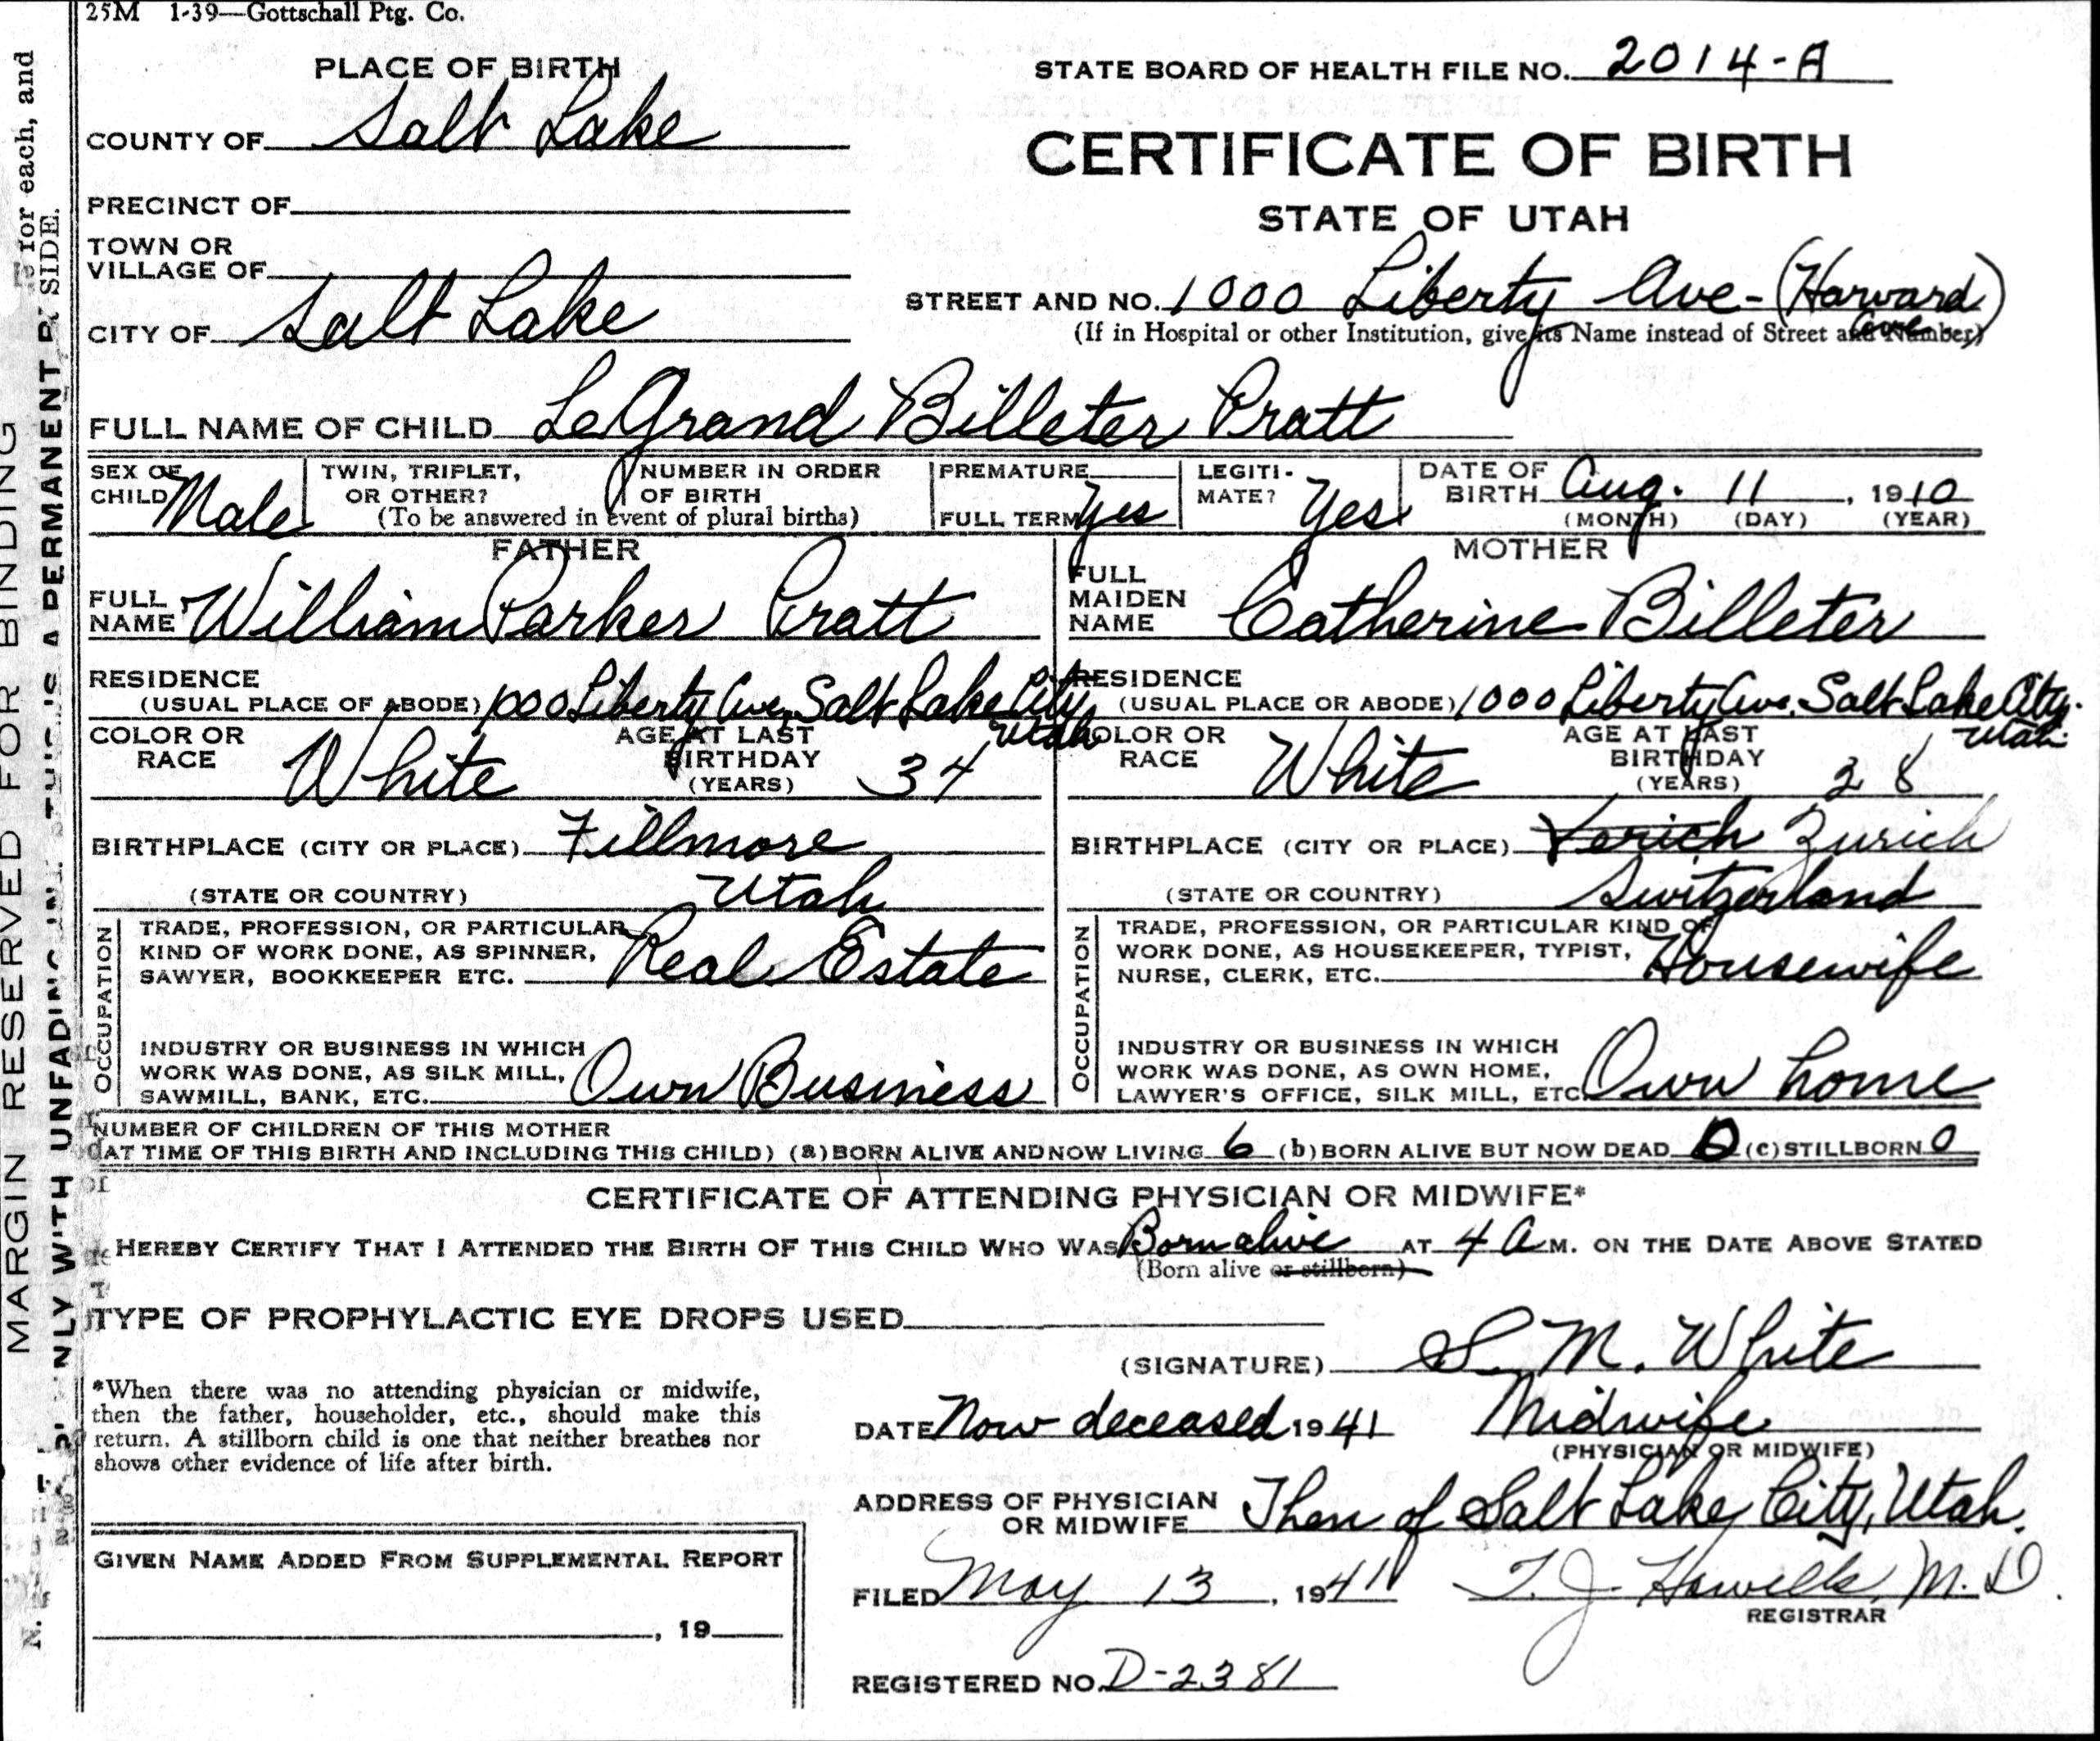 25M 1-39—Gottschall Ptg. Co.
PLACE OF BIRTH
STATE BOARD OF HEALTH FILE NO. 2014-A
COUNTY OF Salt Lake
CERTIFICATE OF BIRTH
PRECINCT OF
STATE OF UTAH
TOWN OR
VILLAGE OF
STREET AND NO. 1000 Liberty Ave - (Harvard Ave)
CITY OF Salt Lake
(If in Hospital or other Institution, give its Name instead of Street and Number)
FULL NAME OF CHILD LeGrand Billeter Pratt
SEX OF CHILD Male
TWIN, TRIPLET, OR OTHER?
NUMBER IN ORDER OF BIRTH
(To be answered in event of plural births)
PREMATURE
FULL TERM Yes
LEGITI-MATE? Yes
DATE OF BIRTH Aug. 11, 1910
(MONTH) (DAY) (YEAR)
FATHER
FULL NAME William Parker Pratt
RESIDENCE
(USUAL PLACE OF ABODE) 1000 Liberty Ave, Salt Lake City, Utah
COLOR OR RACE White
AGE AT LAST BIRTHDAY (YEARS) 34
BIRTHPLACE (CITY OR PLACE) Fillmore
(STATE OR COUNTRY) Utah
OCCUPATION
TRADE, PROFESSION, OR PARTICULAR
KIND OF WORK DONE, AS SPINNER,
SAWYER, BOOKKEEPER ETC. Real Estate
INDUSTRY OR BUSINESS IN WHICH
WORK WAS DONE, AS SILK MILL,
SAWMILL, BANK, ETC. Own Business
MOTHER
FULL MAIDEN NAME Catherine Billeter
RESIDENCE
(USUAL PLACE OR ABODE) 1000 Liberty Ave. Salt Lake City. Utah.
COLOR OR RACE White
AGE AT LAST BIRTHDAY (YEARS) 28
BIRTHPLACE (CITY OR PLACE) Yerich Zurich
(STATE OR COUNTRY) Switzerland
OCCUPATION
TRADE, PROFESSION, OR PARTICULAR KIND OF
WORK DONE, AS HOUSEKEEPER, TYPIST,
NURSE, CLERK, ETC. Housewife
INDUSTRY OR BUSINESS IN WHICH
WORK WAS DONE, AS OWN HOME,
LAWYER'S OFFICE, SILK MILL, ETC. Own home
NUMBER OF CHILDREN OF THIS MOTHER
AT TIME OF THIS BIRTH AND INCLUDING THIS CHILD) (a) BORN ALIVE AND NOW LIVING 6 (b) BORN ALIVE BUT NOW DEAD 0 (c) STILLBORN 0
CERTIFICATE OF ATTENDING PHYSICIAN OR MIDWIFE*
HEREBY CERTIFY THAT I ATTENDED THE BIRTH OF THIS CHILD WHO WAS Born alive AT 4 A M. ON THE DATE ABOVE STATED
(Born alive or stillborn)
TYPE OF PROPHYLACTIC EYE DROPS USED
(SIGNATURE) S. M. White
*When there was no attending physician or midwife,
then the father, householder, etc., should make this
return. A stillborn child is one that neither breathes nor
shows other evidence of life after birth.
DATE Now deceased 1941 Midwife
(PHYSICIAN OR MIDWIFE)
ADDRESS OF PHYSICIAN
OR MIDWIFE Then of Salt Lake City, Utah.
GIVEN NAME ADDED FROM SUPPLEMENTAL REPORT
, 19
FILED May 13, 1941 T. J. Howells, M.D.
REGISTRAR
REGISTERED NO. D-2381
MARGIN RESERVED FOR BINDING
WITH UNFADING THIS IS A PERMANENT
for each, and
SIDE.